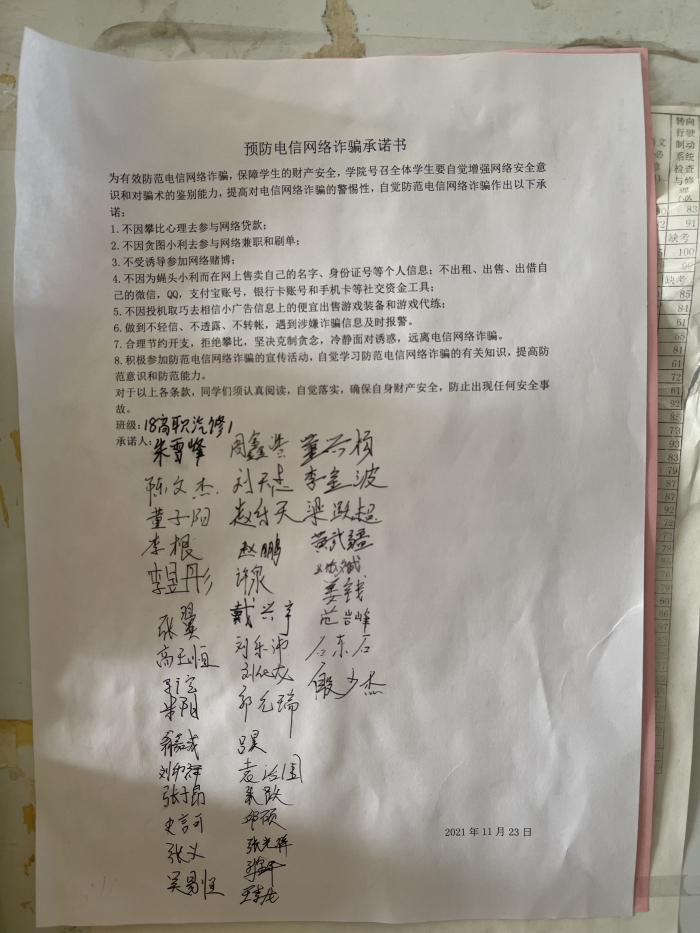 预防电信网络诈骗承诺书
为有效防范电信网络诈骗，保障学生的财产安全，学院号召全体学生要自觉增强网络安全意
识和对骗术的鉴别能力，提高对电信网络诈骗的警惕性，自觉防范电信网络诈骗作出以下承
诺：
1.不因攀比心理去参与网络贷款；
2.不因贪图小利去参与网络兼职和刷单；
3.不受诱导参加网络赌博；
4.不因为蝇头小利而在网上售卖自己的名字、身份证号等个人信息；不出租、出售、出借自
己的微信，QQ，支付宝账号，银行卡账号和手机卡等社交资金工具；
5.不因投机取巧去相信小广告信息上的便宜出售游戏装备和游戏代练；
6.做到不轻信、不透露、不转帐，遇到涉嫌诈骗信息及时报警。
7.合理节约开支，拒绝攀比，坚决克制贪念，冷静面对诱惑，远离电信网络诈骗。
8.积极参加防范电信网络诈骗的宣传活动，自觉学习防范电信网络诈骗的有关知识，提高防
范意识和防范能力。
对于以上各条款，同学们须认真阅读，自觉落实，确保自身财产安全，防止出现任何安全事
故。
班级：18高职汽修1
承诺人：朱雪峰 周鑫浩
陈文杰 刘天志 李金波
董子阳 赵行天 梁跃超
李根 赵鹏 黄武疆
李昱彤 许泉 姜钱
张翼 戴兴宇 范岩峰
高玉恒 刘乐沛 石东石
郭允瑞 殷少杰
吕昊
袁治国
张子昂 朱政
史言可 邱硕
张义 张光辉
吴易恒
2021年11月23日
转向
行驶
制动
系统
检查
与修
83
91
缺考
100
缺考
85
84